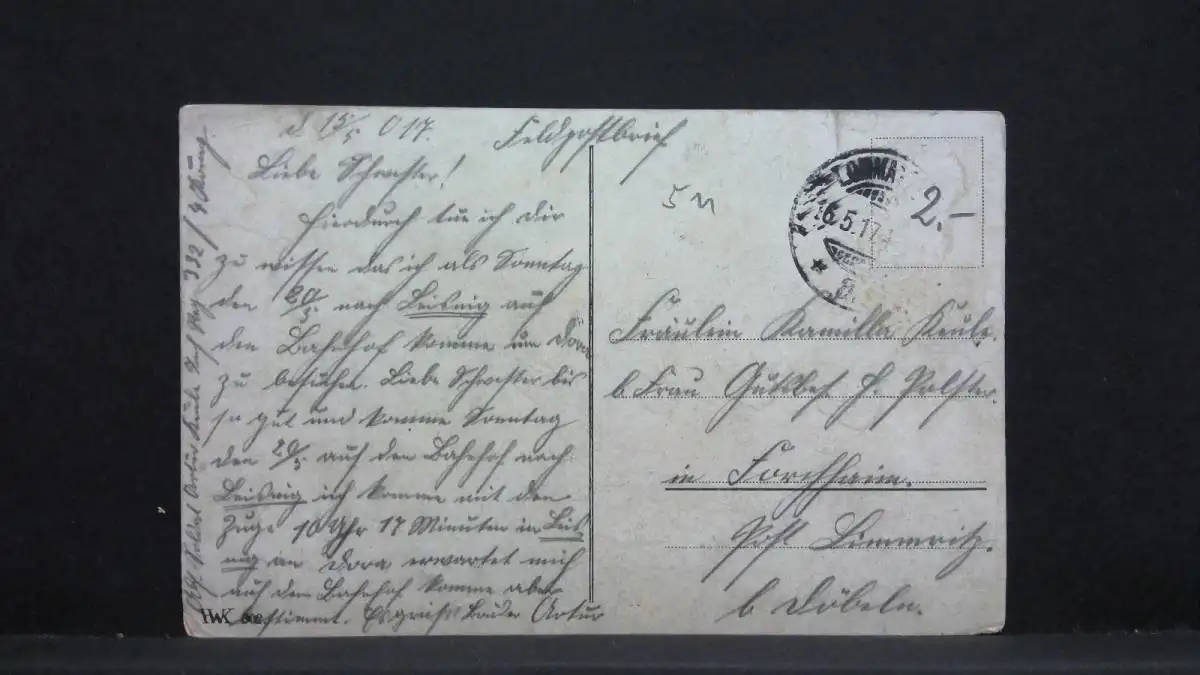 d. 15/5. 017.
Feldpostbrief
Liebe Schwester!
Hierdurch tue ich dir
zu wissen das ich als Sonntag
den 20/5. nach Leisnig auf
den Bahnhof komme um Dora
zu besuchen. Liebe Schwester bis
so gut und komme Sonntag
den 20/5 auf den Bahnhof nach
Leisnig ich komme mit den
Zuge 10 Uhr 17 Minuten in Leis
nig an Dora erwartet mich
auf dem Bahnhof komme aber
bestimmt. Es grüßt Bruder Artur
Soldat Artur Keule
HWK
5 M
LOMMATZ
16.5.17
2.-
Fräulein Kamilla Keule.
b Frau Gutsbes H. Polster.
in Forchheim.
Post Limmritz.
b Döbeln.